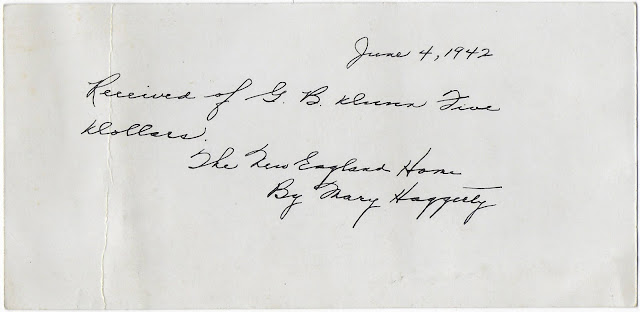 June 4, 1942
Received of G. B. Dunn Five
Dollars.
The New England Home
By Mary Haggerty